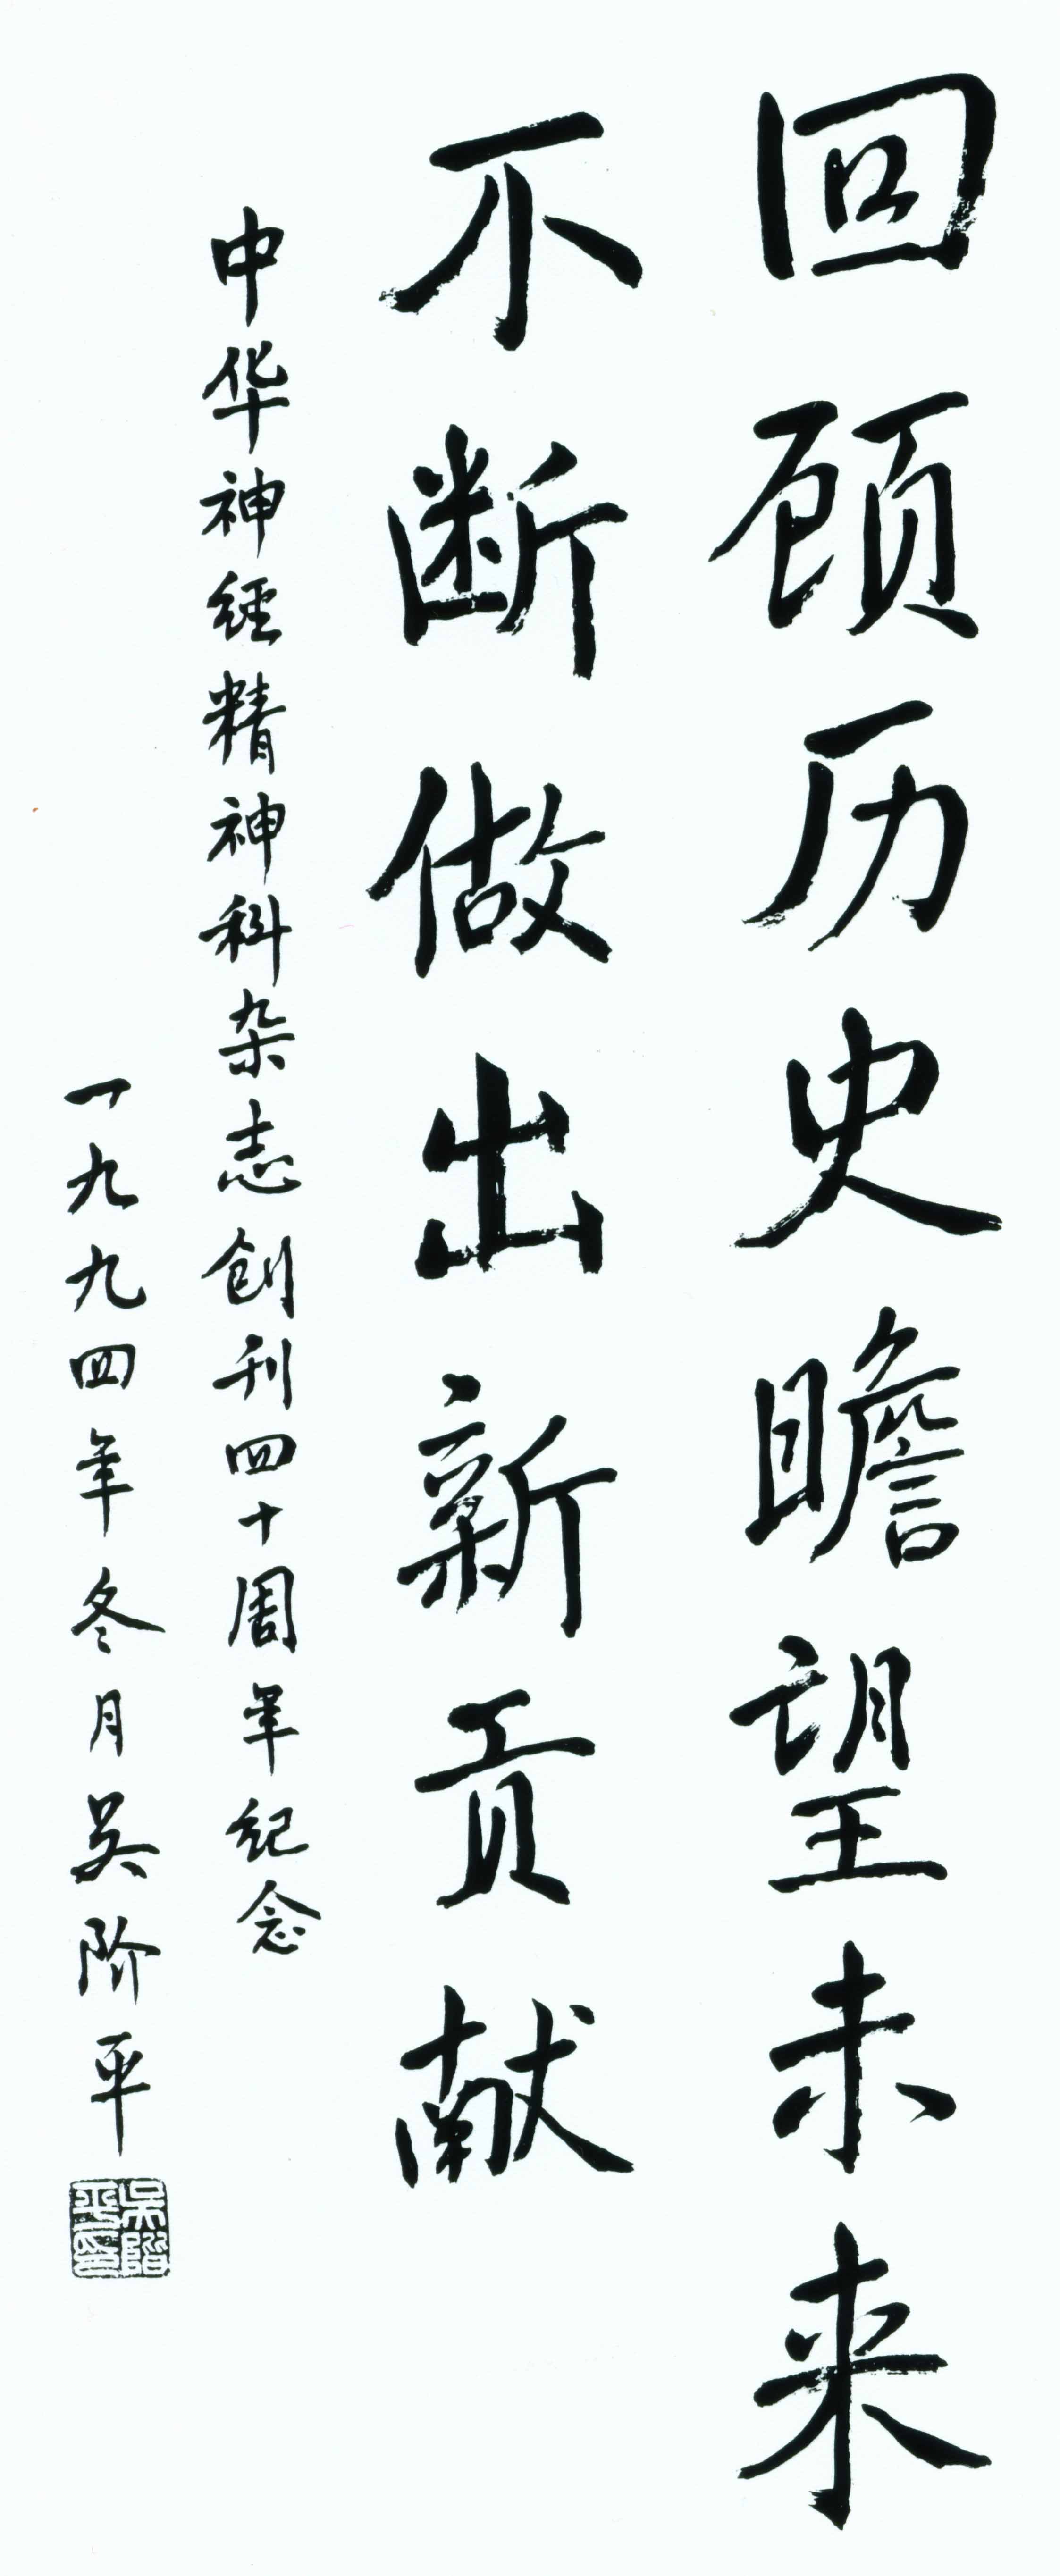 回顾历史瞻望未来
不断做出新贡献
中华神经精神科杂志创刊四十周年纪念
一九九四年冬月吴阶平
吴阶平印